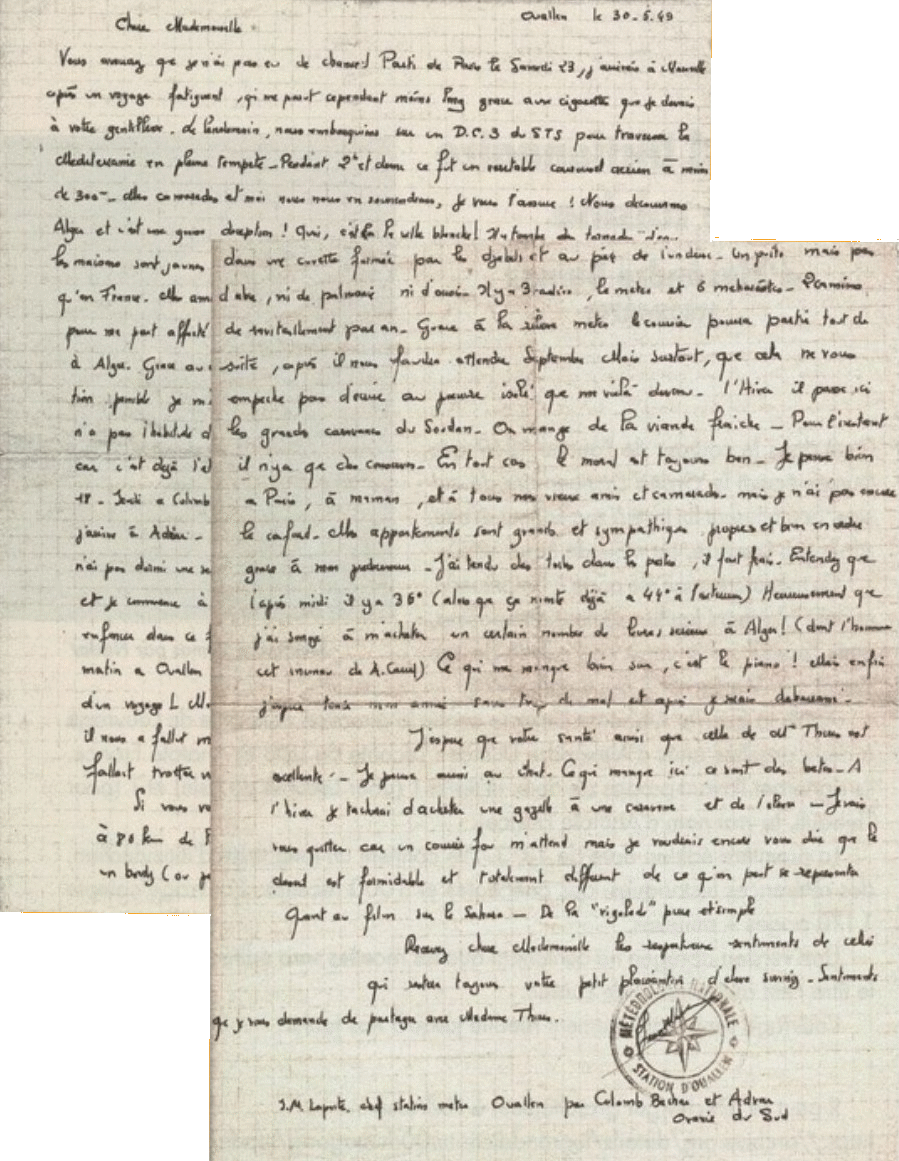 Ouallen le 30-5-49
Chère Mademoiselle
Vous avouerez que je n'ai pas eu de chance! Parti de Paris le Samedi 23, j'arrivais à Marseille
après un voyage fatiguant, qui me parut cependant moins long grace aux cigarettes que je devais
à votre gentillesse. Le lendemain, nous embarquions sur un D.C.3 du STS pour traverser la
Mediterranée en pleine tempete - Pendant 2h et demi ce fut un veritable carrousel aerien à moins
de 300m - Mes camarades et moi nous nous en souviendrons, je vous l'assure! Nous découvrons
Alger et c'est une grosse deception! Quoi, c'est la ville blanche! Il y tombe du
les maisons sont jaunes
qu'en France. Mes
pour me part affecté
à Alger. Grace au
tion possible je m
n'a pas l'habitude d
car c'est déjà l'
18 - Jeudi a Colomb
j'arrive à Adrar -
n'ai pas dormi une
et je commence à
enfoncer dans ce
matin a Ouallen
d'un voyage! M
il nous a fallut
fallait
Si vous
à 80 km de
un body (ou
dans une cuvette formée par les djebels et au pas de l'undeux - Un puits mais pas
d'abre, ni de palmeraie ni d'oasis - Il y a 3 radios, le meteo et 6 meharistes - 2 camions
de ravitaillement par an - Grace à la meteo le courrier pourra partir tout de
suite, après il nous faudra attendre Septembre Mais surtout, que cela ne vous
empeche pas d'écrire au pauvre isolé que me voilà devenu - l'Hiver il passe ici
les grandes caravanes du Soudan - On mange de la viande fraiche - Pour l'instant
il n'y a que des conserves - En tout cas le moral est toujours bon - Je pense bien
a Paris, à maman, et à tous mes vieux amis et camarades - mais je n'ai pas encore
le cafard - Mes appartements sont grands et sympathiques propres et bien en ordre
grace à mon predecesseur - J'ai tendu des toiles dans les portes, il fait frais - Entendez que
l'après midi il y a 36° (alors que ça monte déjà a 44° à l'exterieur) Heureusement que
j'ai songé à m'acheter un certain nombre de livres serieux à Alger! (dont l'homme
cet inconnu de A. Carrel) Ce qui me manque bien sur, c'est le piano! Mais enfin
j'espere tenir mon année sans trop de mal et après je serais debarrassé -
J'espere que votre santé ainsi que celle de Me Thiers est
excellente - Je pense aussi au chat. Ce qui manque ici ce sont des betes - A
l'hiver je tacherai d'acheter une gazelle à une caravane et de l'elever - Je vais
vous quitter car un courrier fou m'attend mais je voudrais encore vous dire que le
desert est formidable et totalement different de ce qu'on peut se representer
Quant au film sur le Sahara - De la "rigolade" pure et simple
Recevez chere Mademoiselle les respectueux sentiments de celui
qui restera toujours votre petit plaisantin d'eleve - Sentiments
que je vous demande de partager avec Madame Thiers.
MÉTÉOROLOGIE NATIONALE
STATION D'OUALLEN
J.M. Laporte, chef station meteo Ouallen par Colomb Bechar et Adrar
Oranie du Sud